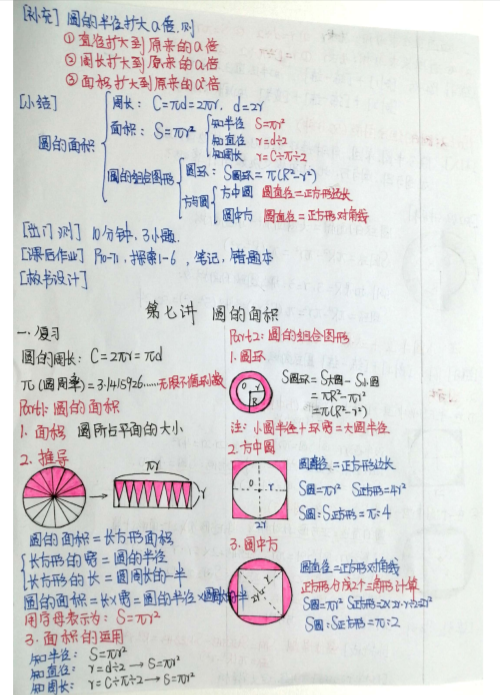 [补充] 圆的半径扩大a倍,则
① 直径扩大到原来的a倍
② 周长扩大到原来的a倍
③ 面积扩大到原来的a²倍
[小结]
圆的面积
周长: C=πd=2πr, d=2r
面积: S=πr²
知半径 S=πr²
知直径 r=d÷2
知周长 r=C÷π÷2
圆的组合图形
圆环: S圆环=π(R²-r²)
方与圆
方中圆 圆直径=正方形边长
圆中方 圆直径=正方形对角线
[出门测] 10分钟, 3小题.
[课后作业] P70-71, 探索1-6, 笔记, 错题本
[板书设计]
第七讲 圆的面积
一.复习
圆的周长: C=2πr=πd
π(圆周率)=3.1415926……无限不循环小数
Part1: 圆的面积
1. 面积 圆所占平面的大小
2. 推导
πr
r
圆的面积=长方形面积
长方形的宽=圆的半径
长方形的长=圆周长的一半
圆的面积=长×宽=圆的半径×圆周长的一半
用字母表示为: S=πr²
3. 面积的运用
知半径: S=πr²
知直径: r=d÷2→S=πr²
知周长: r=C÷π÷2→S=πr²
Part2: 圆的组合图形
1. 圆环
O r
R
S圆环=S大圆-S小圆
=πR²-πr²
=π(R²-r²)
注: 小圆半径+环宽=大圆半径
2. 方中圆
O r
2r
圆直径=正方形边长
S圆=πr² S正方形=4r²
S圆:S正方形=π:4
3. 圆中方
2r
r
圆直径=正方形对角线
正方形分成2个三角形计算
S圆=πr² S正方形=2×2r·r÷2=2r²
S圆:S正方形=π:2